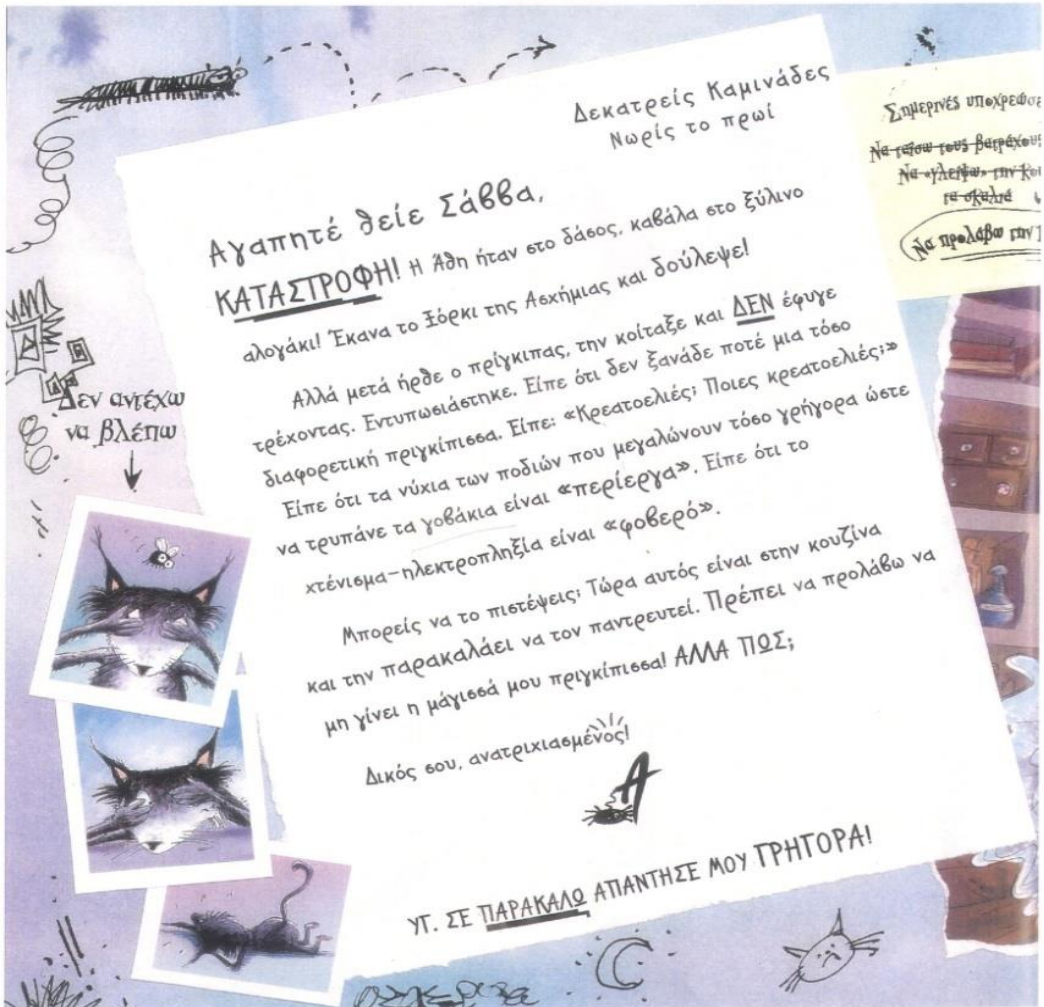 Δεκατρείς Καμινάδες
Νωρίς το πρωί
Αγαπητέ θείε Σάββα,
ΚΑΤΑΣΤΡΟΦΗ! Η Άθη ήταν στο δάσος, καβάλα στο ξύλινο
αλογάκι! Έκανα το Ξόρκι της Ασχήμιας και δούλεψε!
Αλλά μετά ήρθε ο πρίγκιπας, την κοίταξε και ΔΕΝ έφυγε
τρέχοντας. Εντυπωσιάστηκε. Είπε ότι δεν ξανάδε ποτέ μια τόσο
διαφορετική πριγκίπισσα. Είπε: «Κρεατοελιές; Ποιες κρεατοελιές;»
Είπε ότι τα νύχια των ποδιών που μεγαλώνουν τόσο γρήγορα ώστε
να τρυπάνε τα γοβάκια είναι «περίεργα». Είπε ότι το
χτένισμα-ηλεκτροπληξία είναι «φοβερό».
Μπορείς να το πιστέψεις; Τώρα αυτός είναι στην κουζίνα
και την παρακαλάει να τον παντρευτεί. Πρέπει να προλάβω να
μη γίνει η μάγισσά μου πριγκίπισσα! ΑΛΛΑ ΠΩΣ;
Δικός σου, ανατριχιασμένος!
Α
ΥΓ. ΣΕ ΠΑΡΑΚΑΛΩ ΑΠΑΝΤΗΣΕ ΜΟΥ ΓΡΗΓΟΡΑ!
Δεν αντέχω
να βλέπω
Σημερινές υποχρεώσε
Να ταΐσω τους βατράχους
Να «γλείψω» την
τα σκαλιά
Να προλάβω την